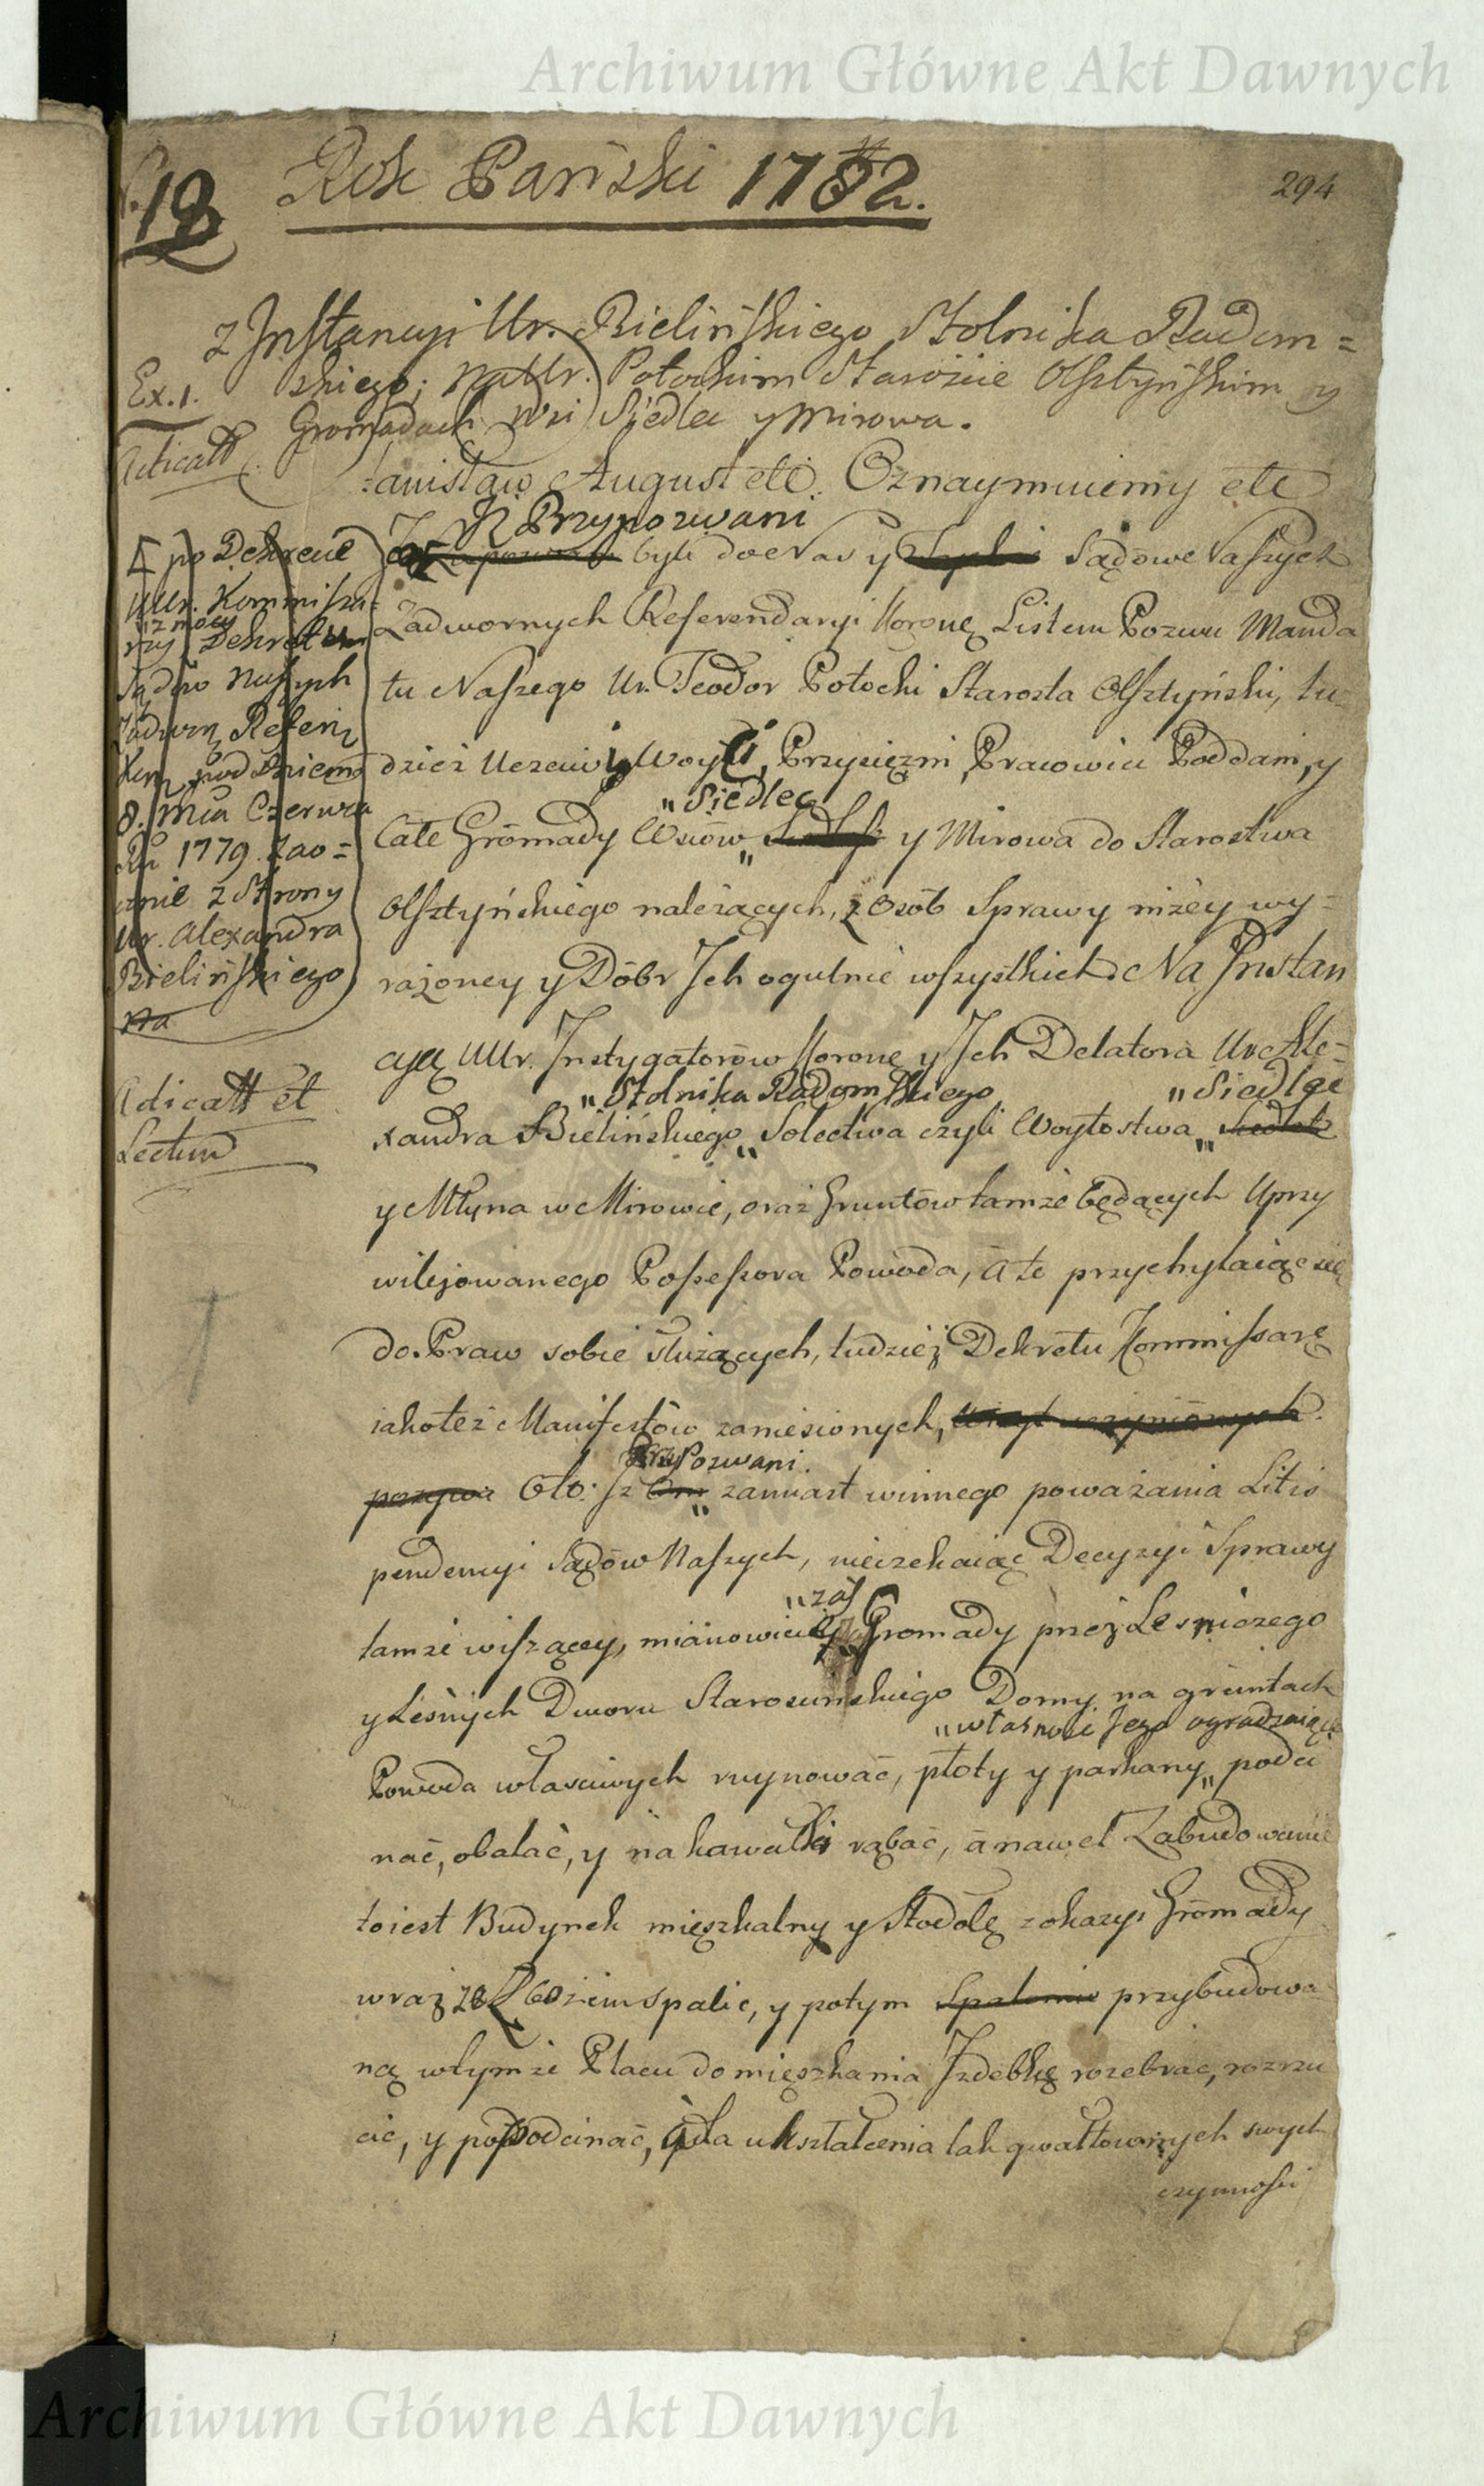 Archiwum Główne Akt Dawnych
19 Rok Pański 1782.
294
z Instancyi Ur. Bielińskiego Stolnika Radom=
skiego; na Ur. Potockim Staroście Olsztyńskim y
Gromadach Wsi Siedlec y Mirowa.
Ex. 1.
Adicatt
Stanisław August etc. Oznaymuiemy etc
Iż Przypozwani
byli do Nas y Sądów Naszych
Zadwornych Referendaryi Koronę Listem Pozwu Manda
tu Naszego Ur. Teodor Potocki Starosta Olsztyński, tu
dzież Uczciwi Woyci, Przysiężni, Pracowici Poddani, y
„Siedlec
Całe Gromady Wsiów„ y Mirowa do Starostwa
Olsztyńskiego należących, z Osób Sprawy niżey wy=
rażoney y Dóbr Ich ogulnie wszystkich. Na Instan
cyą UUr. Instygatorów Koronę y Ich Delatora Ur. Ale=
„Stolnika Radomskiego „Siedlce
xandra Bielińskiego„ Solectwa czyli Woytostwa„
y Młyna w Mirowie, oraz Gruntów tamże będących Uprzy
wilejowanego Possessora Powoda, A to przychylaiąc się
do Praw sobie służących, tudzież Dekretu Kommissarę
iakoteż Manifestów zaniesionych,
Przypozwani.
pozywa Oto: Iż Oni„ zamiast winnego poważania Litis
pendencyi Sądów Naszych, nieczekaiąc Decyzyi Sprawy
„zaś
tamże wiszącey, mianowicie„ Gromady przez Lesniczego
y Leśnych Dworu Starościńskiego Domy na gruntach
„własność Jego ogradzaiące
Powoda własciwych ruynować, płoty y parkany„ podci
nać, obalać, y na kawałki rąbać, a nawet Zabudowanie
toiest Budynek mięszkalny y Stodolę z okazyi Gromady
wraz ze Zbożem spalić, y potym Spalenie przybudowa
ną w tymże Placu do mięszkania Izdebkę rozebrać, rozrzu
cić, y popodcinać, a dla ukształcenia tak gwałtownych swych
czynności
po Dekrecie
UUr. Kommissa=
rzy z mocy Dekretu
Sądów Naszych
Zadwrn Referę
Kor pod Dniem
8. Mca Czerwca
Ru 1779. Zao=
cznie z Strony
Ur. Alexandra
Bielińskiego
na
Adicatt et
Lectum
Archiwum Główne Akt Dawnych